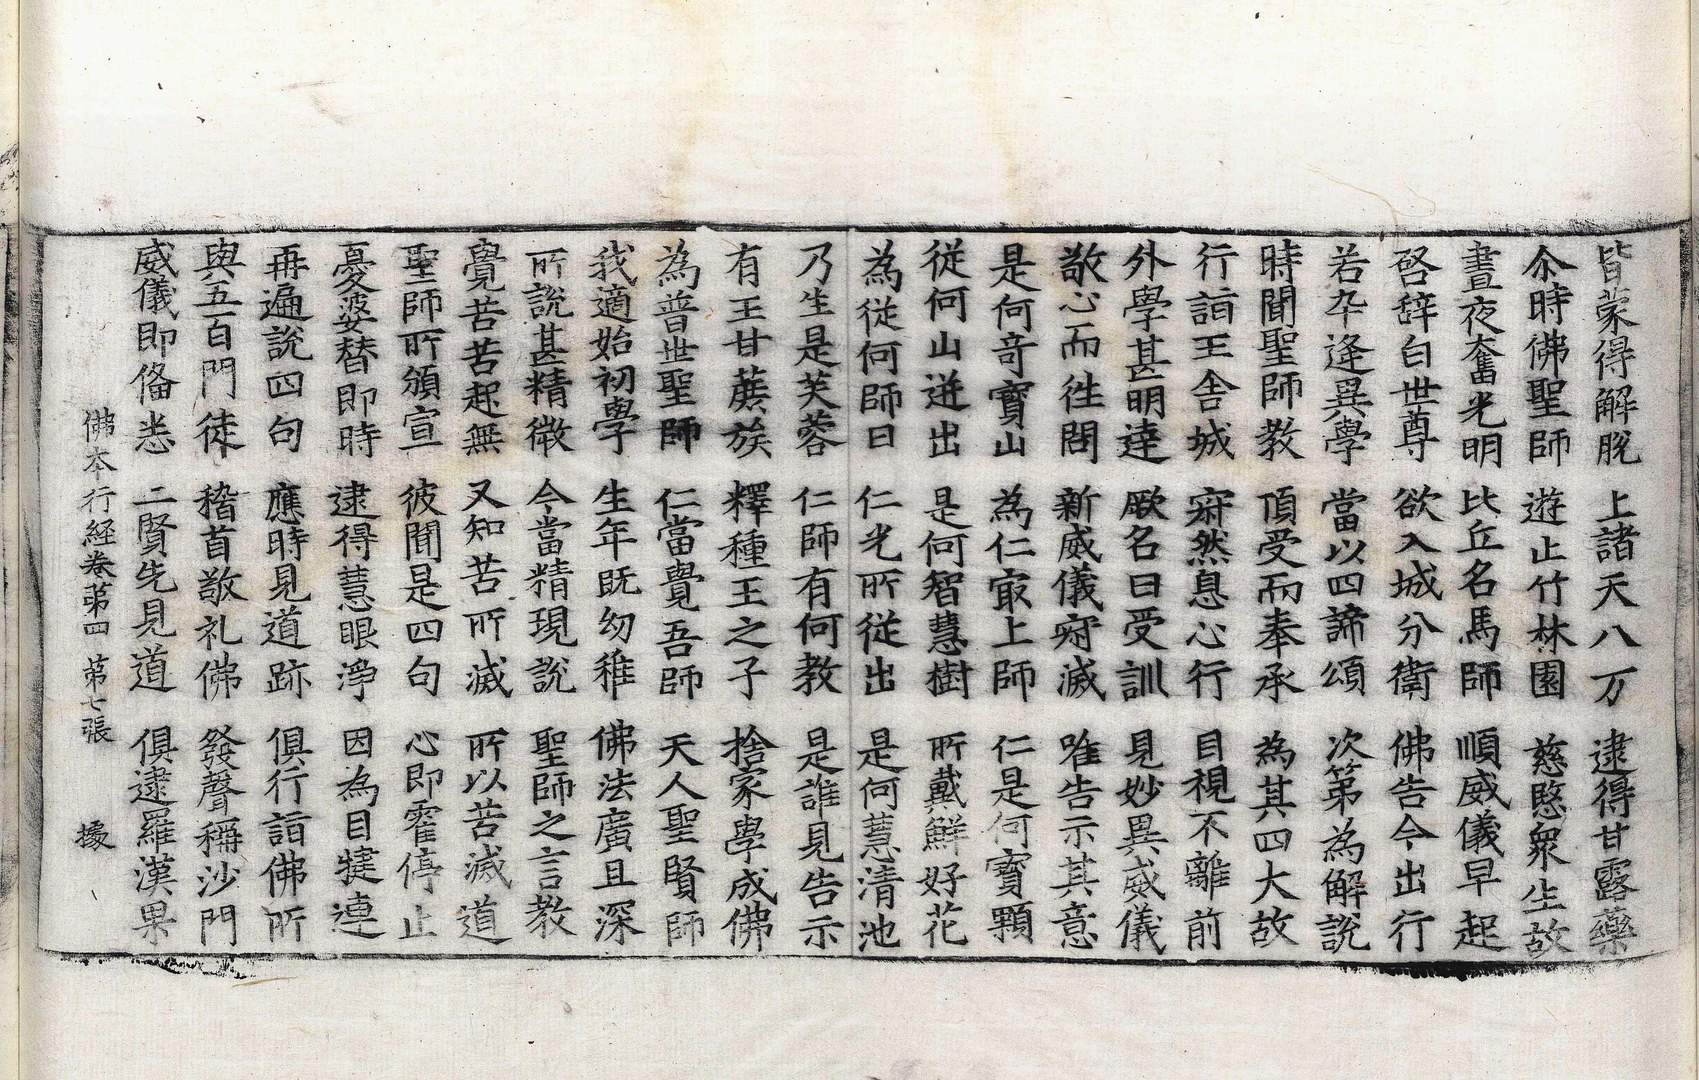 皆蒙得解脫　上諸天八万　逮得甘露藥
尒時佛聖師　遊止竹林園　慈愍衆生故
晝夜奮光明　比丘名馬師　順威儀早起
啓辞白世尊　欲入城分衛　佛告今出行
若卒逢異學　當以四諦頌　次第為解說
時聞聖師教　頂受而奉承　為其四大故
行詣王舍城　寂然息心行　目視不離前
外學甚明達　厥名曰受訓　見妙異威儀
敬心而往問　新威儀寂滅　唯告示其意
是何奇寶山　為仁㝡上師　仁是何寶顆
従何山迸出　是何智慧樹　所戴鮮好花
為従何師曰　仁光所従出　是何慧清池
乃生是芙蓉　仁師有何教　是誰見告示
有王甘蔗族　釋種王之子　捨家學成佛
為普世聖師　仁當覺吾師　天人聖賢師
我適始初學　生年既幼稚　佛法廣且深
所說甚精微　今當精現說　聖師之言教
覺苦苦起無　又知苦所滅　所以苦滅道
聖師所頒宣　彼聞是四句　心即霍停止
憂婆替即時　逮得慧眼淨　因為目揵連
再遍說四句　應時見道跡　俱行詣佛所
與五百門徒　稽首敬礼佛　發聲稱沙門
威儀即俻悉　二賢先見道　俱逮羅漢果
佛本行経卷第四　第七張　據